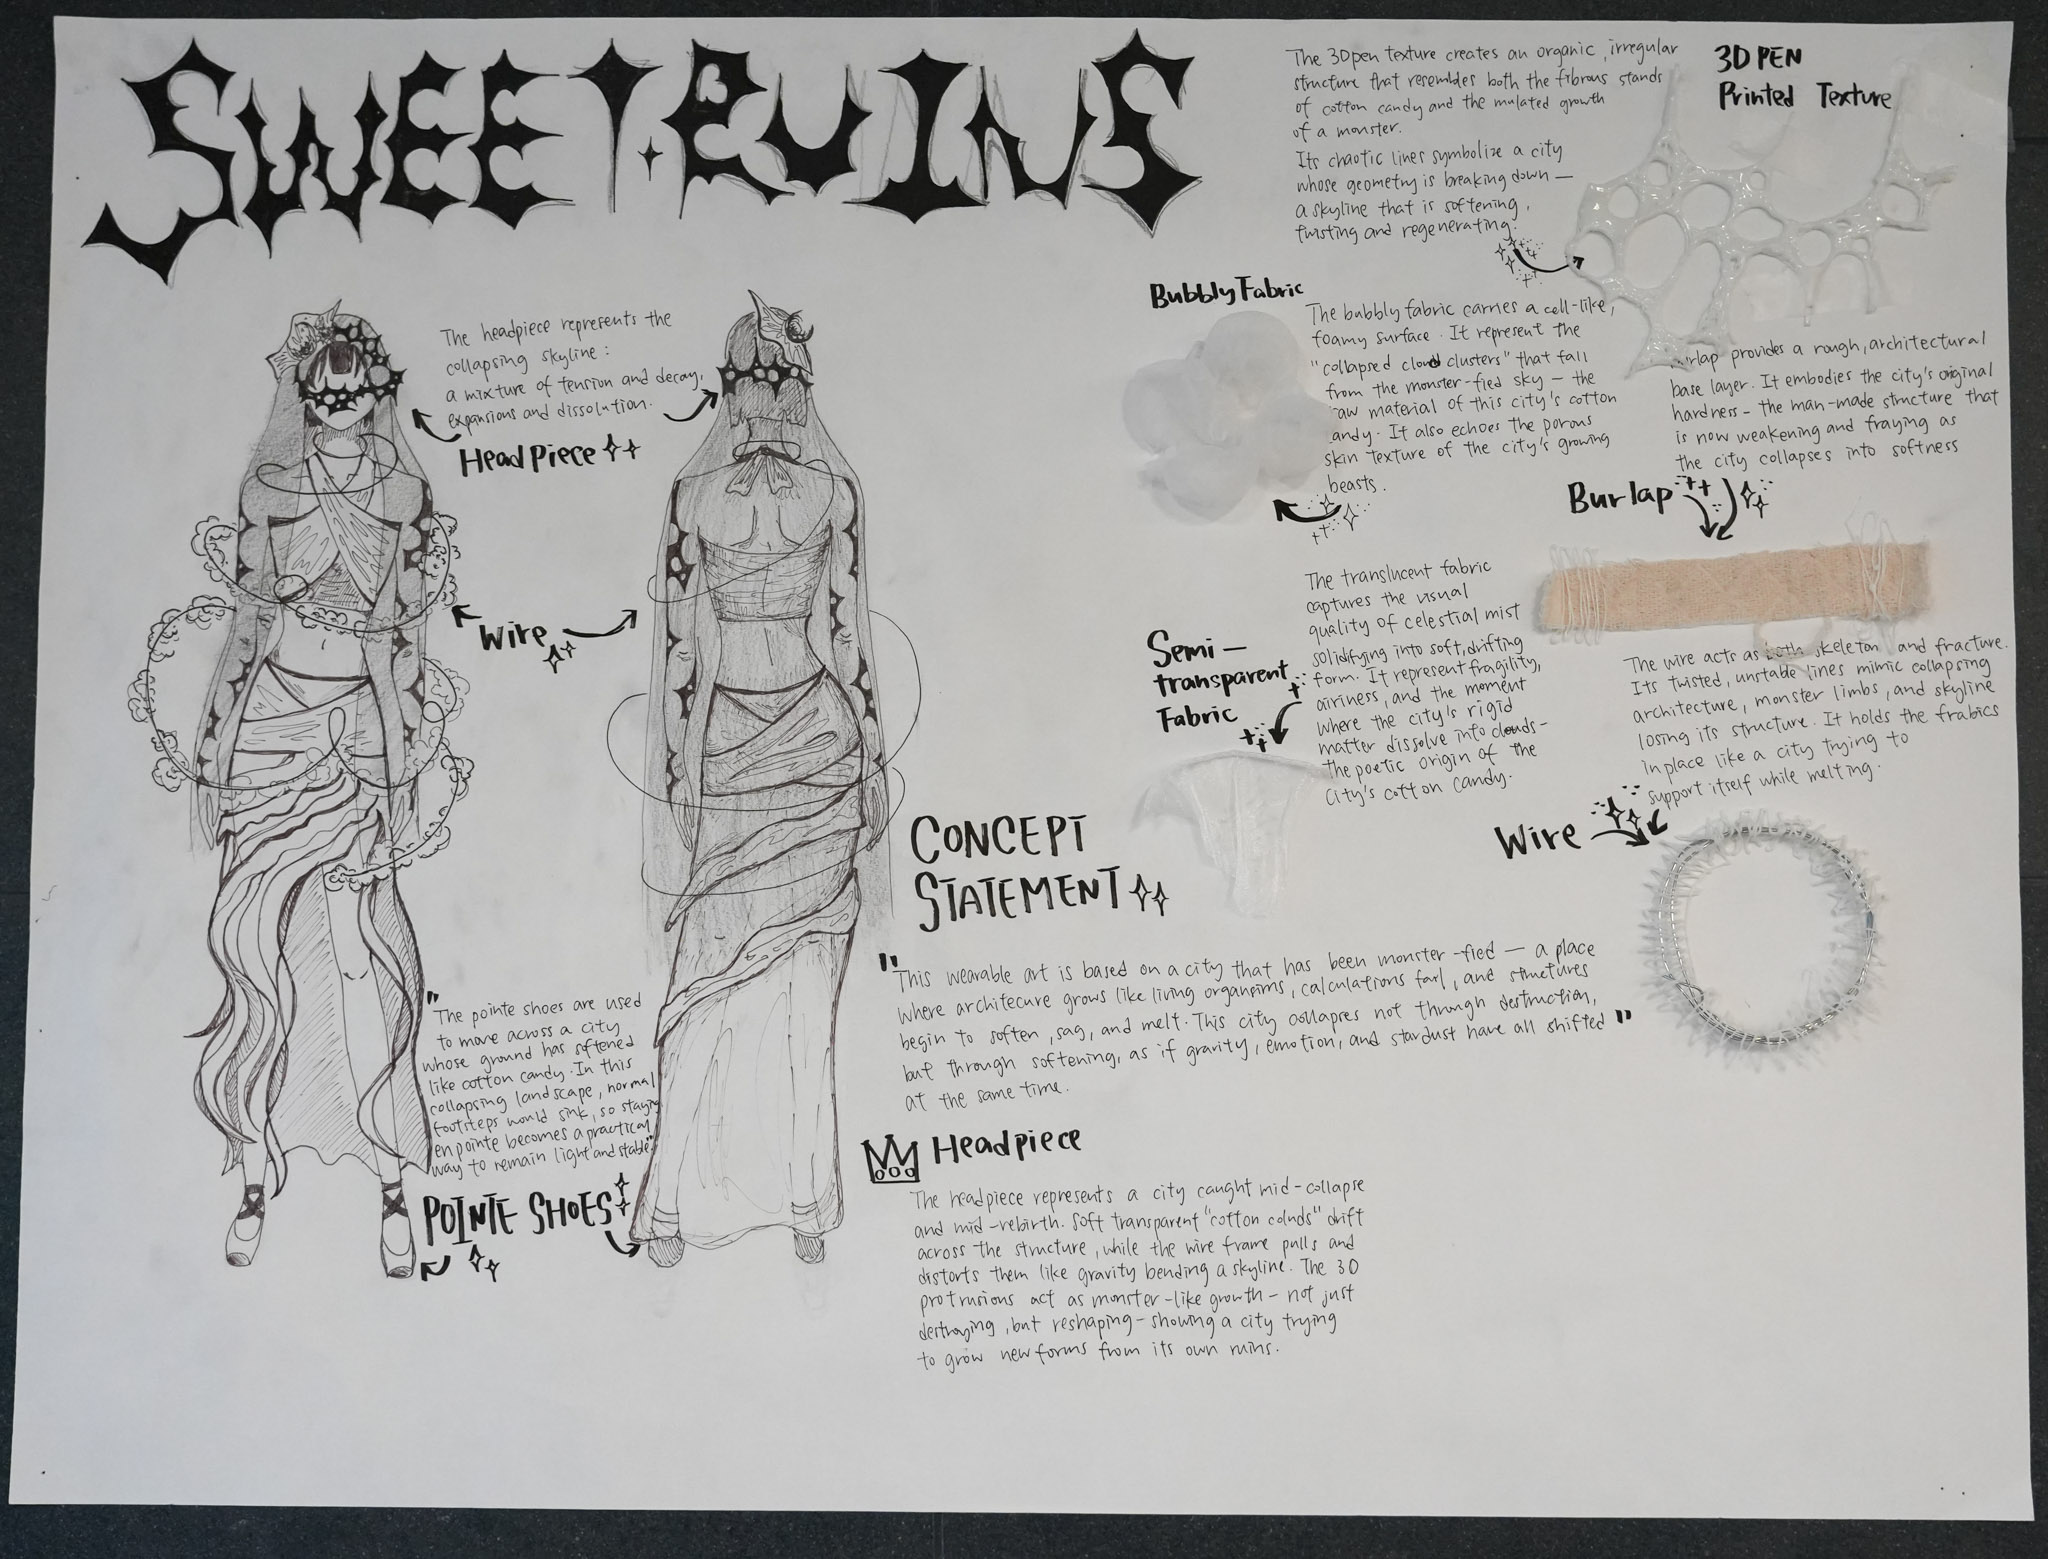 SWEET RUINS
The headpiece represents the
collapsing skyline :
a mixture of tension and decay,
expansions and dissolution.
HeadPiece
Wire
"The pointe shoes are used
to move across a city
whose ground has softened
like cotton candy. In this
collapsing landscape, normal
footsteps would sink, so staying
en pointe becomes a practical
way to remain light and stable"
POINTE SHOES
The 3Dpen texture creates an organic, irregular
structure that resembles both the fibrous stands
of cotton candy and the mulated growth
of a monster.
Its chaotic lines symbolize a city
whose geometry is breaking down —
a skyline that is softening,
twisting and regenerating.
3D PEN
Printed Texture
Bubbly Fabric
The bubbly fabric carries a cell-like,
foamy surface. It represent the
"collapsed cloud clusters" that fall
from the monster-fied sky — the
raw material of this city's cotton
candy. It also echoes the porous
skin texture of the city's growing
beasts.
Burlap provides a rough, architectural
base layer. It embodies the city's original
hardness - the man-made structure that
is now weakening and fraying as
the city collapses into softness
Burlap
Semi —
transparent
Fabric
The translucent fabric
captures the visual
quality of celestial mist
solidifying into soft, drifting
form. It represent fragility,
airiness, and the moment
where the city's rigid
matter dissolve into clouds -
the poetic origin of the
city's cotton candy.
The wire acts as both skeleton and fracture.
Its twisted, unstable lines mimic collapsing
architecture, monster limbs, and skyline
losing its structure. It holds the frabics
in place like a city trying to
support itself while melting.
Wire
CONCEPT
STATEMENT
"This wearable art is based on a city that has been monster-fied — a place
where architecure grows like living organisms, calculations fail, and structures
begin to soften, sag, and melt. This city collapses not through destruction,
but through softening, as if gravity, emotion, and stardust have all shifted "
at the same time.
Headpiece
The headpiece represents a city caught mid-collapse
and mid-rebirth. Soft transparent "cotton colnds" drift
across the structure, while the wire frame pulls and
distorts them like gravity bending a skyline. The 3D
protrusions act as monster-like growth - not just
destroying, but reshaping - showing a city trying
to grow new forms from its own ruins.